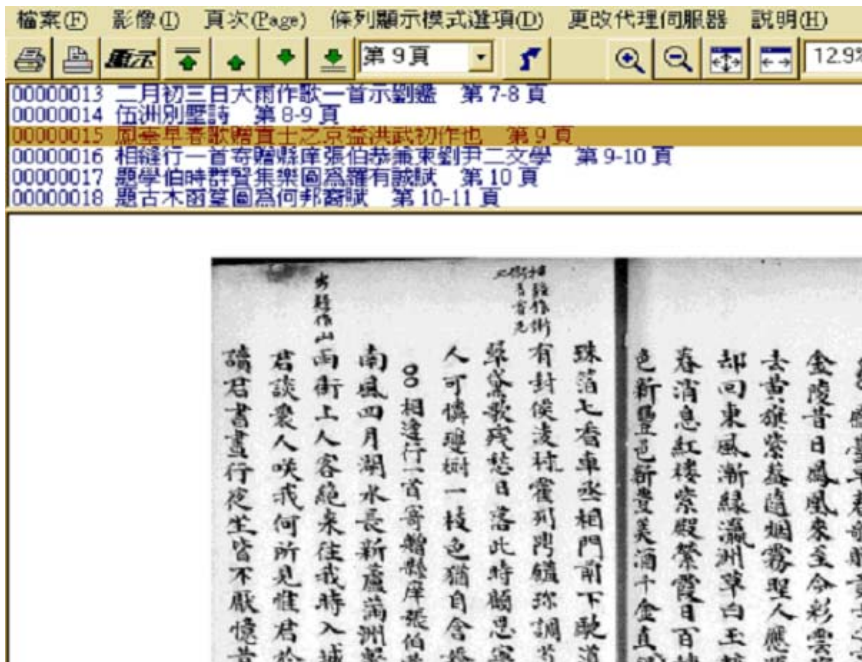 檔案(F) 影像(I) 頁次(Page) 條列顯示模式選項(D) 更改代理伺服器 說明(H)
重示 第 9頁 12.9
00000013 二月初三日大雨作歌一首示劉鑑 第 7-8 頁
00000014 伍洲別墅詩 第 8-9 頁
00000015 鳳臺早春歌贈貢士之京益洪武初作也 第 9 頁
00000016 相逢行一首寄贈縣庠張伯恭兼柬劉尹二文學 第 9-10 頁
00000017 題學伯時群賢集樂圖為羅有誠賦 第 10 頁
00000018 題古木㽞篁圖為何邦裔賦 第 10-11 頁
金陵昔日鳳凰來至今彩雲
去黃旗紫蓋隨烟霧聖人應
却回東風漸綠瀛洲草白玉
春消息紅樓紫殿縈霞日百
色新豐邑新豐美酒千金直
珠箔七香車丞相門前下馳道
有封侯凌霍列調
歌殘愁日落此時願思
人可憐瓊樹一枝色猶自含
相逢行一首寄贈縣庠張伯
南風四月湖水長新蘆滿洲
雨街上人客絕來往我時入城
君談衆人咲我何所見惟君於
讀君書晝行夜坐皆不厭憶昔